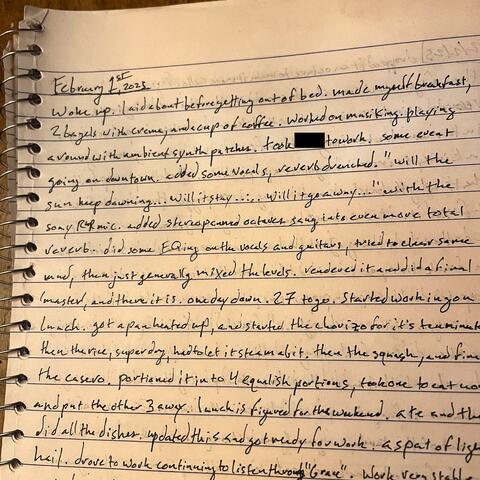 February 1st, 2025
woke up. laid about before getting out of bed. made myself breakfast,
2 bagels with creme, and a cup of coffee. worked on musiking. playing
around with ambient synth patches. took to work. some event
going on downtown. added some vocals, reverb drenched. "will the
sun keep dawning... will it stay .... will it go away..." with the
sony R4R mic. added stereo panned octaves sang into even more total
reverb. did some EQing on the vocals and guitars, tried to clear some
mud, then just generally mixed the levels. rendered it and did a final
master, and there it is. one day down. 27 to go. Started working on
lunch. got a pan heated up, and started the chorizo for it's
then the rice, super dry, had to let it steam a bit. then the squash, and
the casero. portioned it into 4 equalish portions, took one to eat
and put the other 3 away. lunch is figured for the weekend. ate and
did all the dishes. updated this and got ready for work. a spat of
hail. drove to work continuing to listen through "Grace". work very stable